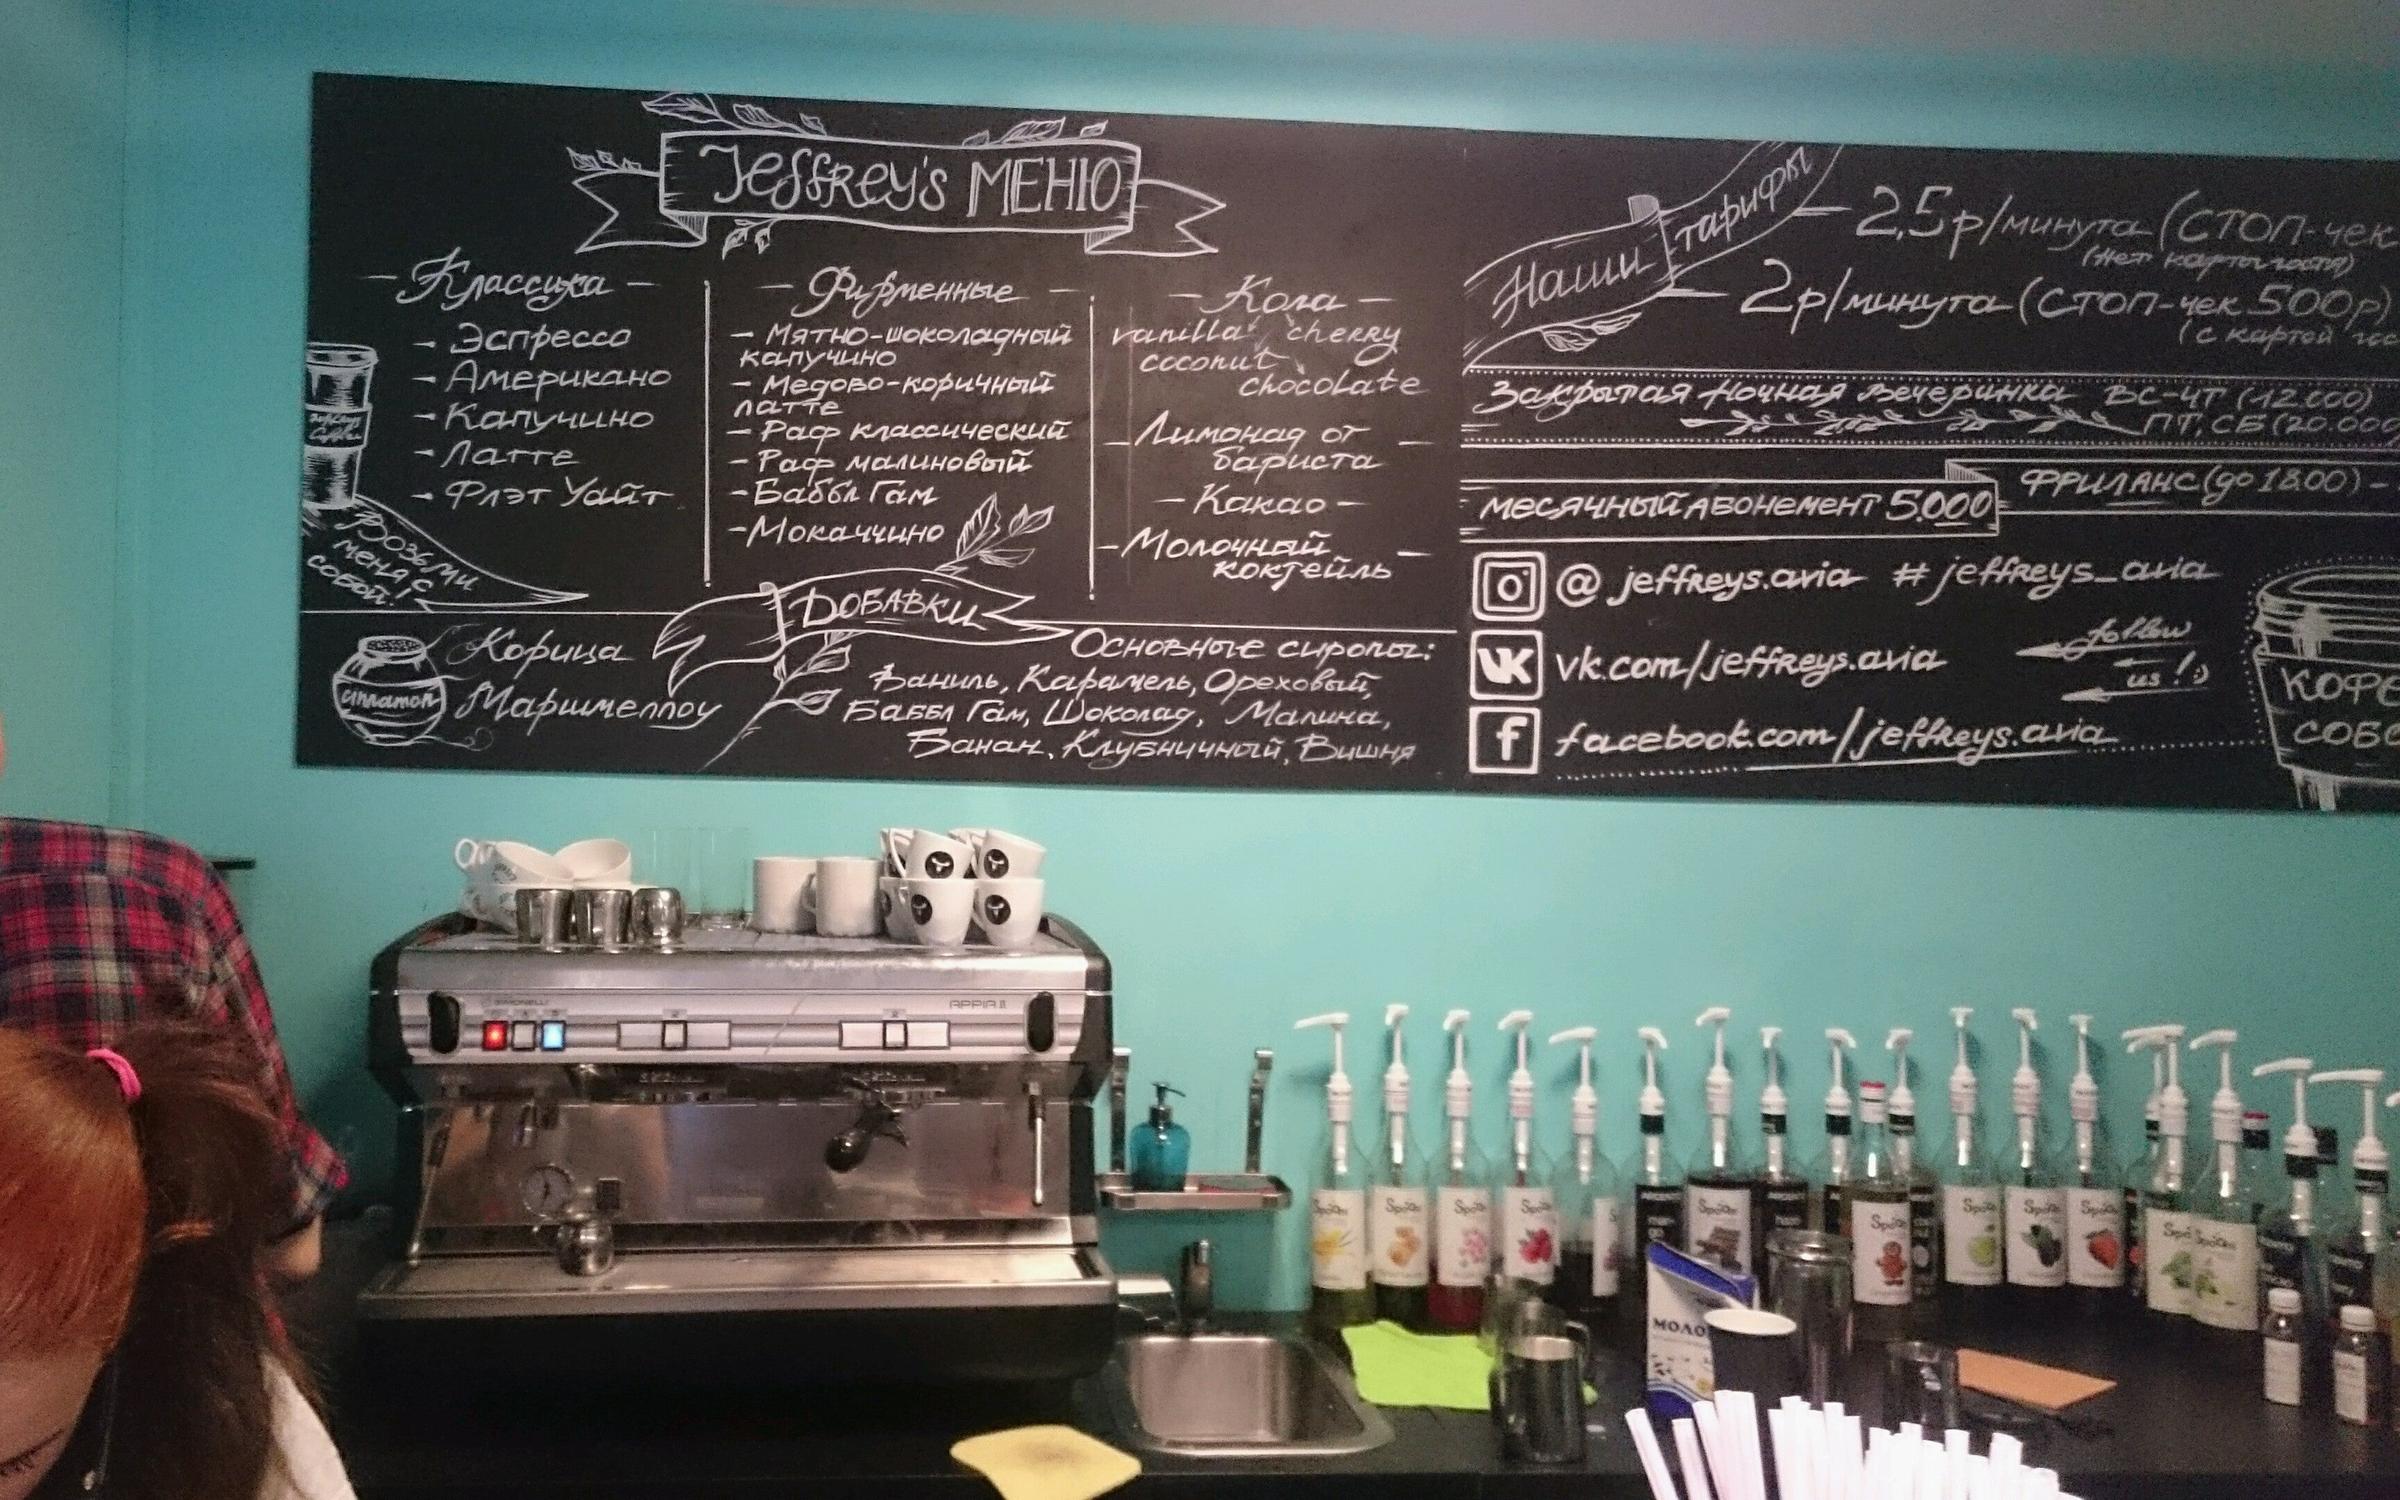 Jeffrey's МЕНЮ
— Классика —
- Эспрессо
- Американо
- Капучино
- Латте
- Флэт Уайт
Возьми
меня с
собой!
— Фирменные —
- Мятно-шоколадный
капучино
- Медово-коричный
латте
- Раф классический
- Раф малиновый
- Баббл Гам
- Мокаччино
— Кола —
vanilla cherry
coconut
chocolate
— Лимонад от —
бариста
— Какао —
— Молочный —
коктейль
ДОБАВКИ
cinnamon
Корица
Маршмеллоу
Основные сиропы:
Ваниль, Карамель, Ореховый,
Баббл Гам, Шоколад, Малина,
Банан, Клубничный, Вишня
Наши тарифы
— 2,5р/минута (СТОП-чек
(нет карты гостя)
— 2р/минута (СТОП-чек 500р)
(с картой
Закрытая Ночная Вечеринка ВС-ЧТ (12.000)
ПТ, СБ (20.000
месячный абонемент 5.000
ФРИЛАНС (до 18.00) -
@jeffreys.avia #jeffreys_avia
vk.com/jeffreys.avia
follow
us! :)
f facebook.com/jeffreys.avia
КОФЕ
СОБО
SIMONELLI
APPIA II
Spoom
Spoom
Spoom
Spoom
Spoom
Spoom
Spoom
Spoom
Spoom
МОЛО